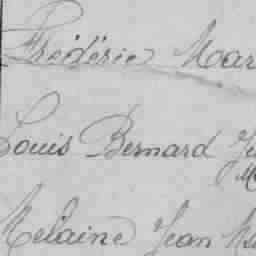 Frédéric Mar
Louis Bernard
Melaine Jean